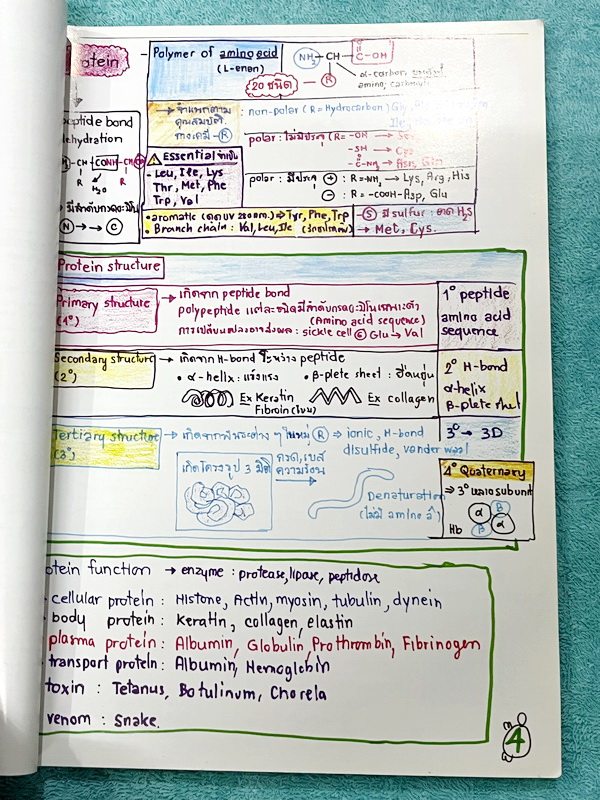 Polymer of amino acid
(L-form)
20 ชนิด
NH₂ CH C-OH
O
R
α-carbon
amino, carboxyl
eptide bond
ehydration
CH CONH CH
R H₂O R
N → C
จำแนกตาม
คุณสมบัติ
ทางเคมี -R
non-polar (R = Hydrocarbon) Gly
polar : ไม่มีประจุ (R = -OH → Se
-SH → Cys
-C-NH₂ → Asn, Gln
polar : มีประจุ ⊕ : R = NH₂ → Lys, Arg, His
⊖ : R = -COOH - Asp, Glu
Essential จำเป็น
- Leu, Ile, Lys
Thr, Met, Phe
Trp, Val
• aromatic (ดูด UV 280 nm.) ⇒ Tyr, Phe, Trp
• Branch chain : Val, Leu, Ile
- S มี sulfur : H₂S
→ Met, Cys.
Protein structure
Primary structure
(1°)
→ เกิดจาก peptide bond
polypeptide แต่ละชนิดมีลำดับกรดอะมิโนเฉพาะตัว
(Amino acid sequence)
การเปลี่ยนแปลงอาจส่งผล : sickle cell Glu → Val
1° peptide
amino acid
sequence
Secondary structure
(2°)
→ เกิดจาก H-bond ระหว่าง peptide
• α-helix : แข็งแรง • β-plete sheet : ยืดหยุ่น
Ex Keratin Ex collagen
Fibroin (ไหม)
2° H-bond
α-helix
β-plete sheet
Tertiary structure
(3°)
→ เกิดจากพันธะต่าง ๆ ในหมู่ R ⇒ ionic, H-bond
disulfide, vander waal
3° → 3D
เกิดโครงรูป 3 มิติ
กรด, เบส
ความร้อน
Denaturation
4° Quaternary
⇒ 3° หลาย subunit
α β
Hb β α
otein function → enzyme : protease, lipase, peptidase
cellular protein : Histone, Actin, myosin, tubulin, dynein
body protein : Keratin, collagen, elastin
plasma protein : Albumin, Globulin Prothrombin, Fibrinogen
transport protein : Albumin, Hemoglobin
toxin : Tetanus, Botulinum, Chorela
venom : Snake.
4